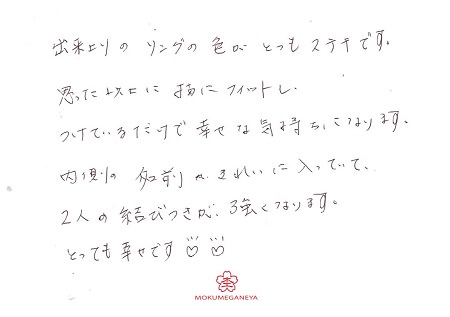 出来上りの リングの 色が とっても ステキです。
思った以上に 指に フィットし、
つけているだけで 幸せな 気持ちになります。
内側の 名前が きれいに 入っていて、
2人の 結びつきが、強くなります。
とっても 幸せです♡♡
MOKUMEGANEYA